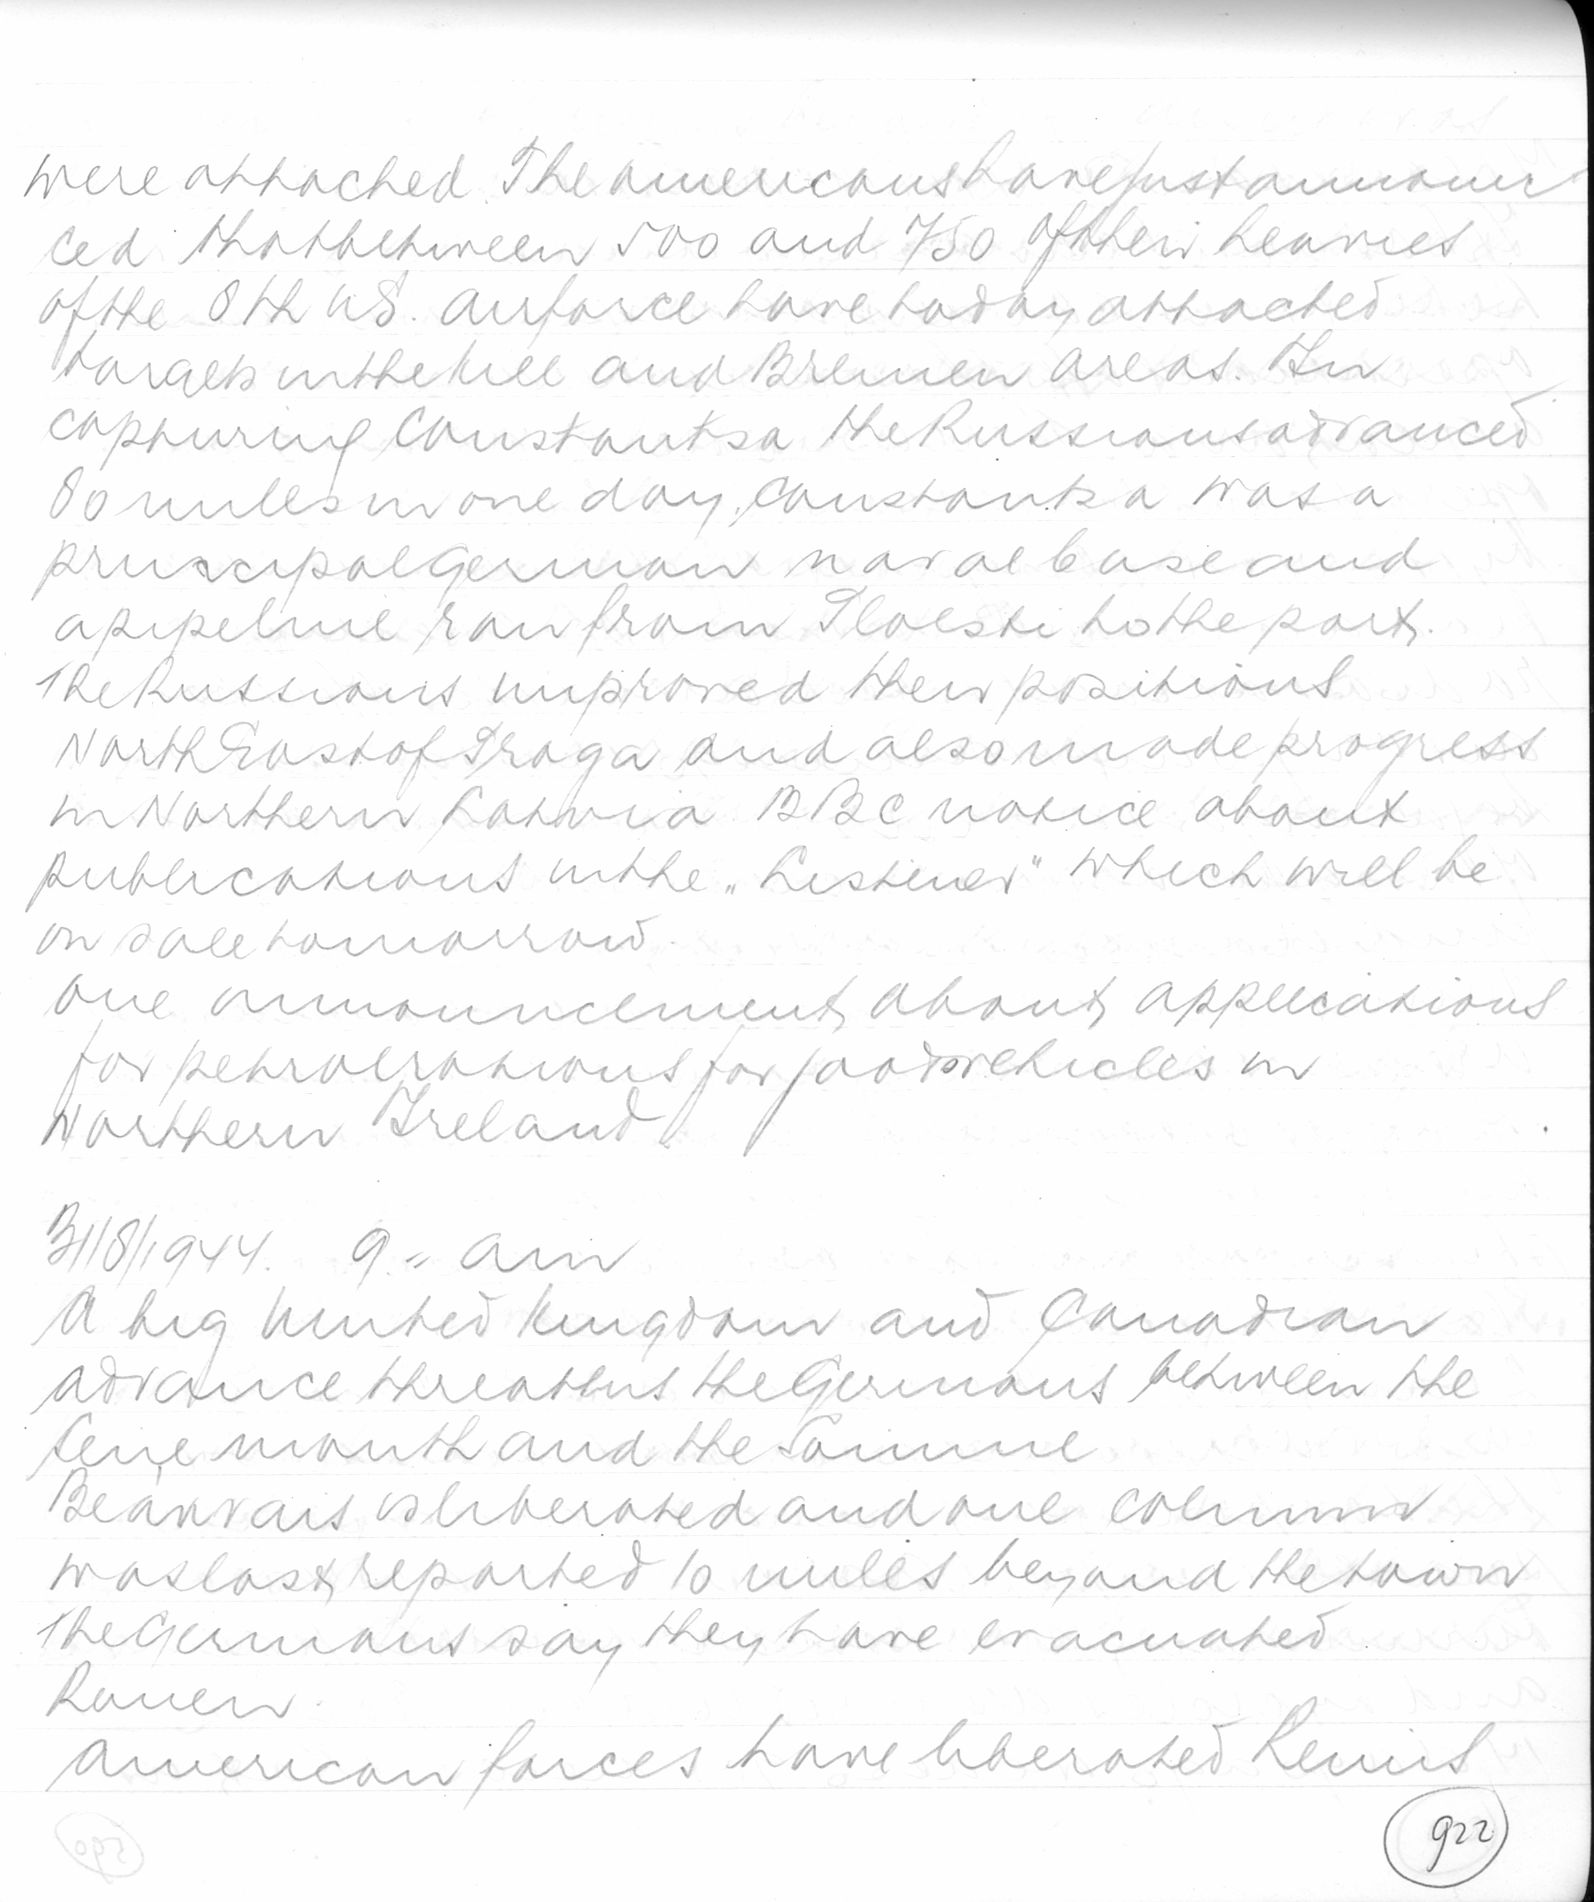 were attacked. The americans have just announ
ced that between 500 and 750 of their heavies
of the 8th US. airforce have today attacked
targets in the kiel and Bremen areas. In
capturing Constantsa the Russians advanced
80 miles in one day. Constantsa was a
principal German naval base and
a pipeline ran from Ploesti to the port.
The Russians improved their positions
North East of Praga and also made progress
in Northern Latvia BBC notice about
publications in the „Listener" which will be
on sale tomorrow
one announcement about applications
for petrol rations for goods vehicles in
Northern Ireland.
31/8/1944. 9.= am
A big United Kingdom and Canadian
advance threatens the Germans between the
Seine mouth and the Somme
Beauvais is liberated and one column
was last reported 10 miles beyond the town
The Germans say they have evacuated
Rouen.
American forces have liberated Reims
922
590